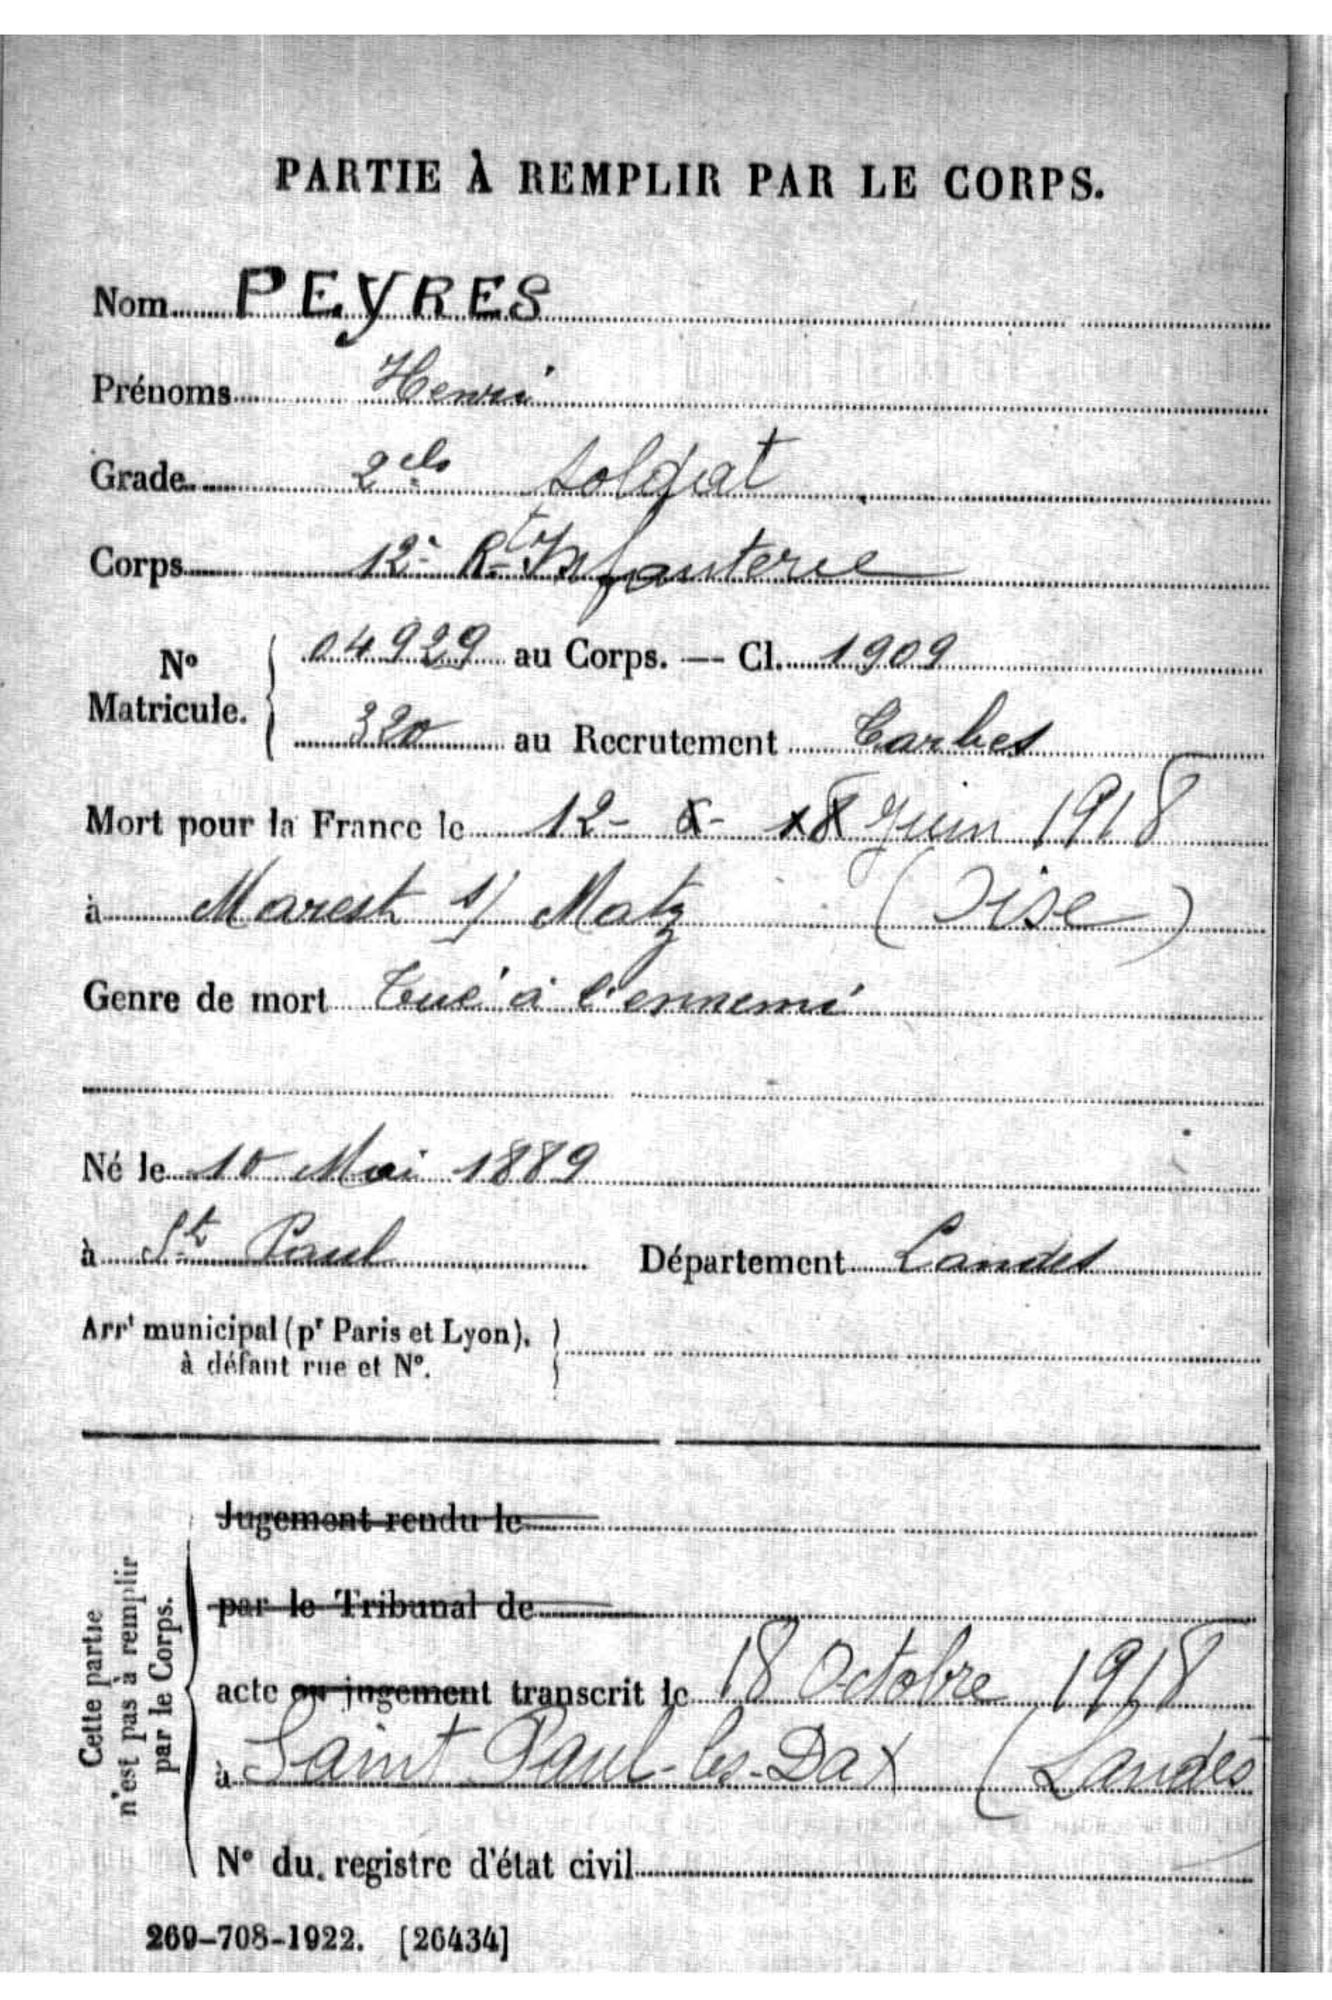 PARTIE À REMPLIR PAR LE CORPS.
Nom PEYRES
Prénoms Henri
Grade 2e cls soldat
Corps 12e Rt Infanterie
No Matricule. 04929 au Corps. — Cl. 1909
320 au Recrutement Tarbes
Mort pour la France le 12- 6- 18 Juin 1918
à Marest s/ Matz (Oise)
Genre de mort Tué à l'ennemi
Né le 10 Mai 1889
à St Paul Département Landes
Arrt municipal (pr Paris et Lyon),
à défaut rue et No.
Cette partie
n'est pas à remplir
par le Corps.
Jugement rendu le
par le Tribunal de
acte ou jugement transcrit le 18 Octobre 1918
à Saint Paul-les-Dax (Landes
No du registre d'état civil
269-708-1922. [26434]